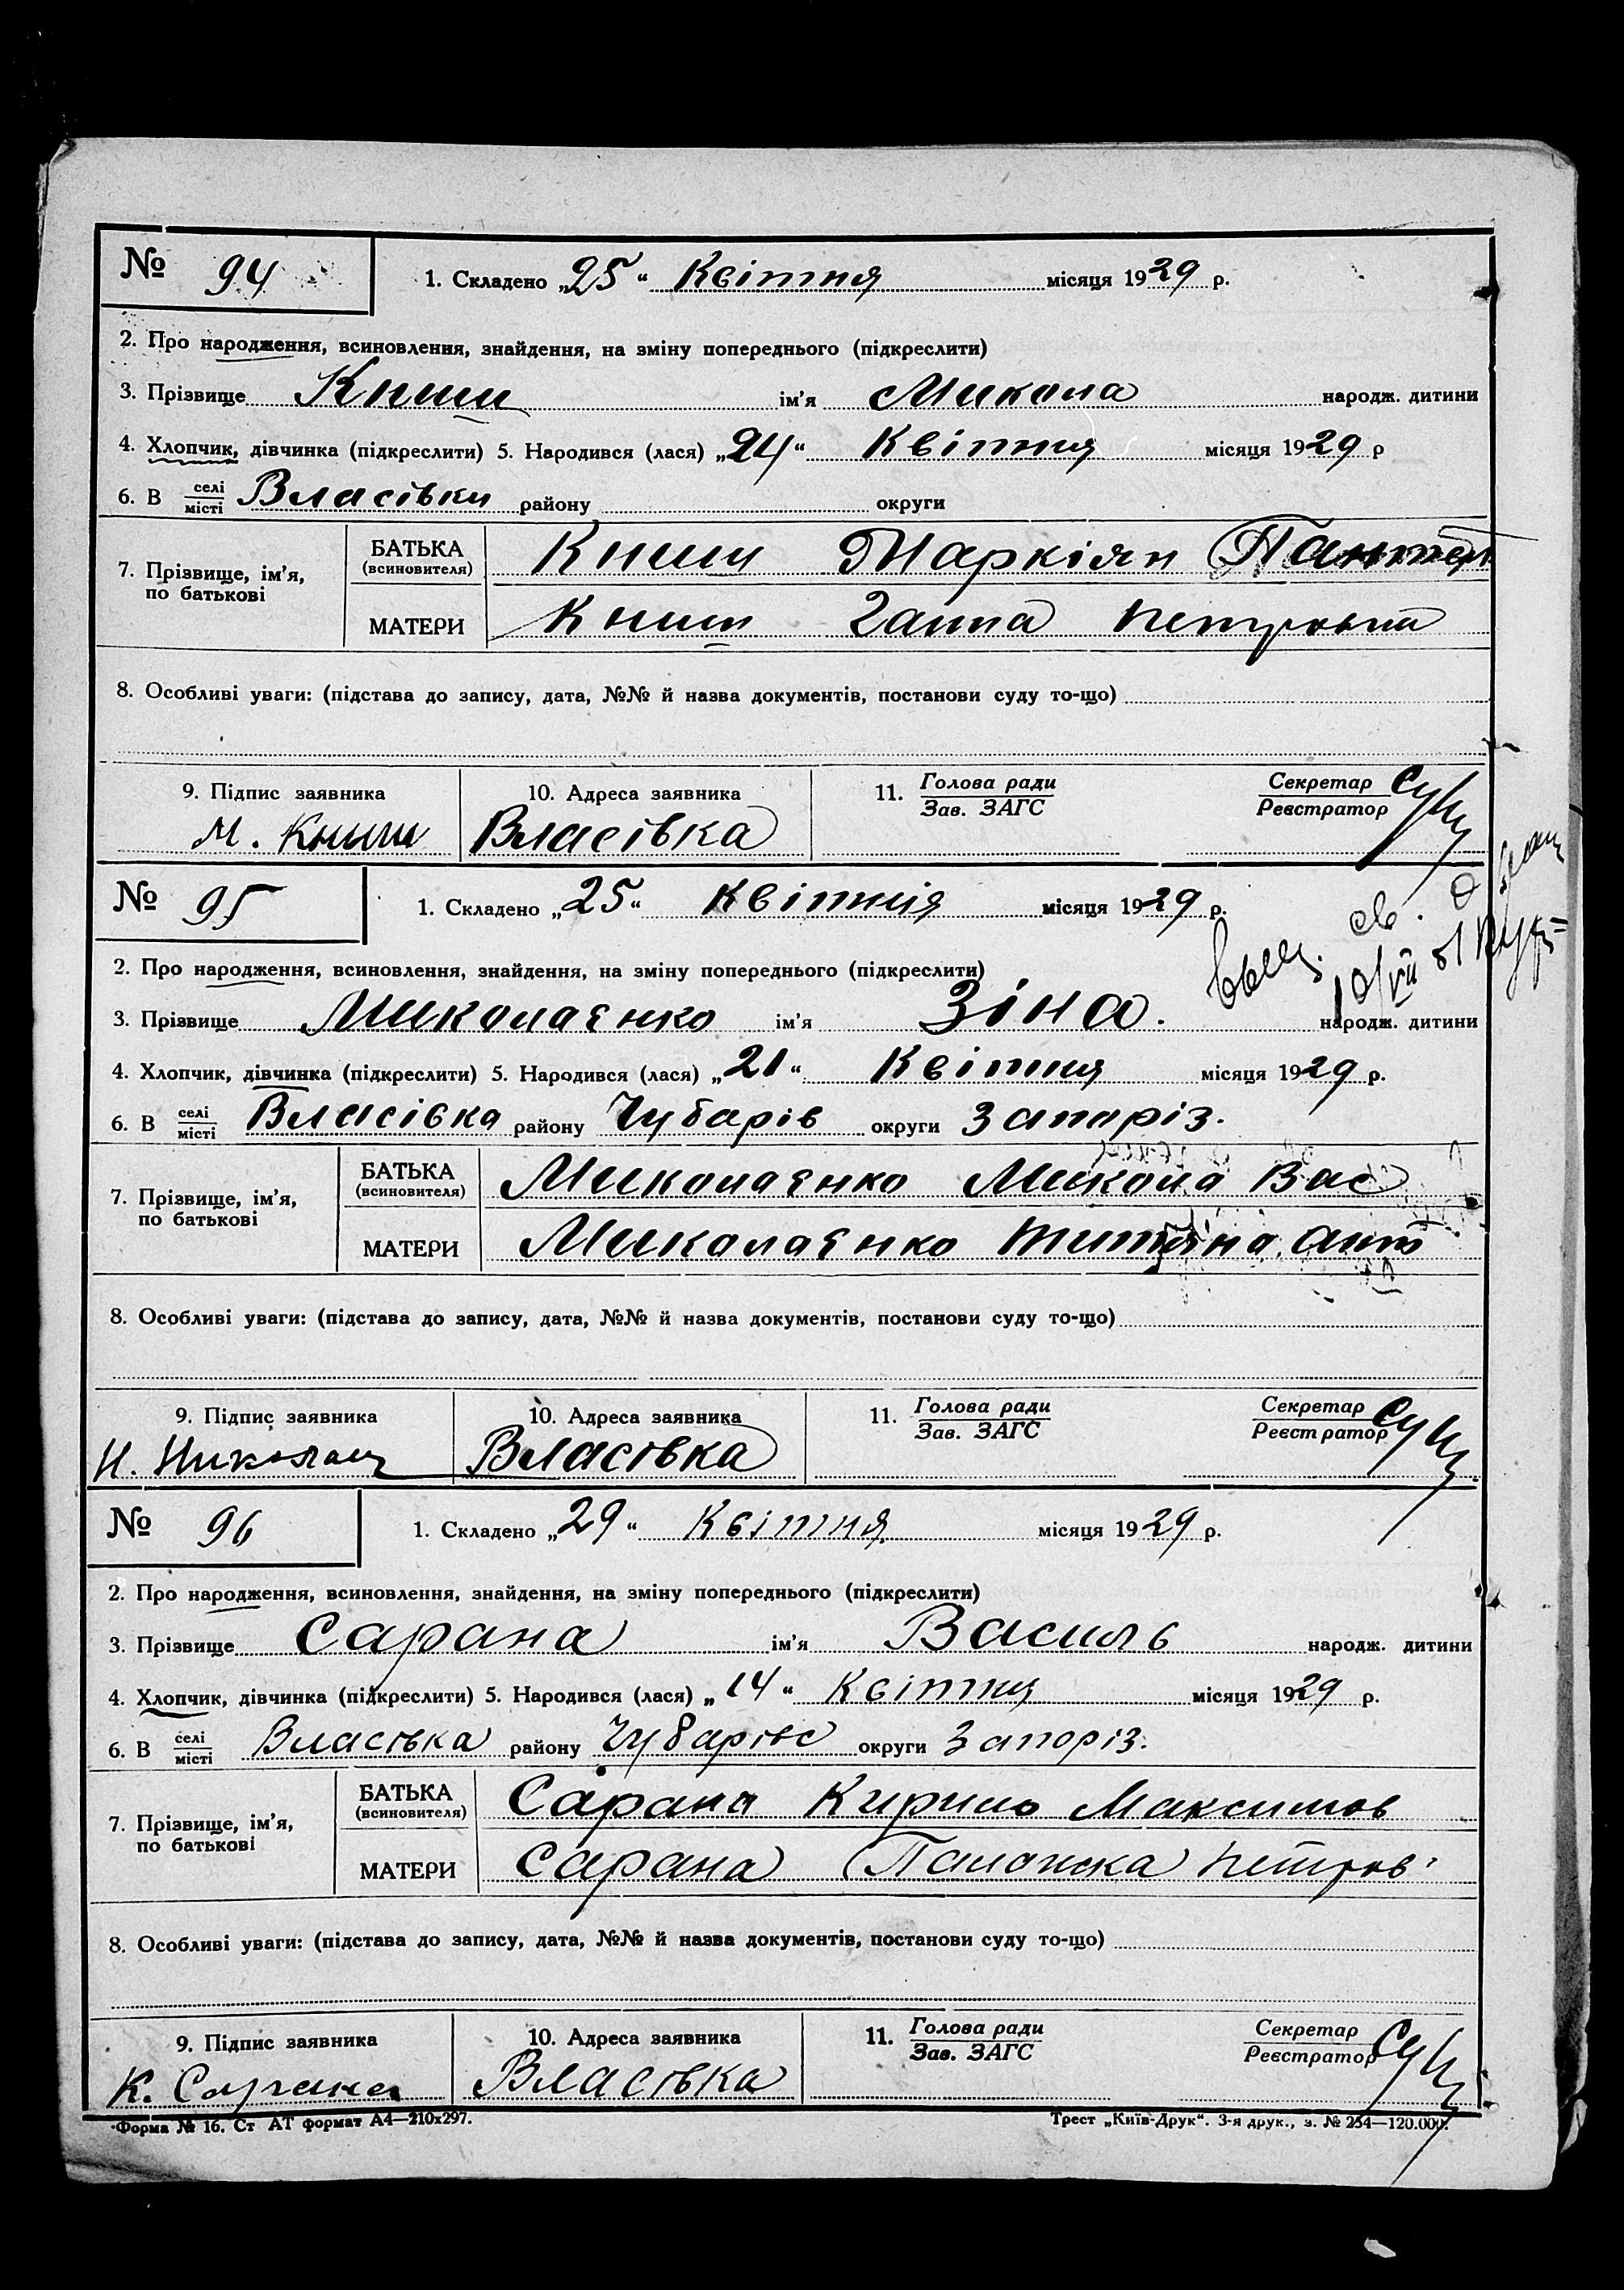 № 94 1. Складено „25“ Квітня місяця 1929 р.
2. Про народження, всиновлення, знайдення, на зміну попереднього (підкреслити)
3. Прізвище Книш ім'я Микола народж. дитини
4. Хлопчик, дівчинка (підкреслити) 5. Народився (лася) „24“ Квітня місяця 1929 р
6. В селі/місті Власівки району округи
7. Прізвище, ім'я, по батькові
БАТЬКА (всиновителя) Книш Маркіян
МАТЕРИ Книш Ганна Петровна
8. Особливі уваги: (підстава до запису, дата, №№ й назва документів, постанови суду то-що)
9. Підпис заявника 10. Адреса заявника 11. Голова ради/Зав. ЗАГС Секретар/Реєстратор
М. Книш Власівка
№ 95 1. Складено „25“ Квітнія місяця 1929 р.
2. Про народження, всиновлення, знайдення, на зміну попереднього (підкреслити)
3. Прізвище Миколаєнко ім'я Зіна. народж. дитини
4. Хлопчик, дівчинка (підкреслити) 5. Народився (лася) „21“ Квітня місяця 1929 р.
6. В селі/місті Власівка району Чубарів округи Запоріз.
7. Прізвище, ім'я, по батькові
БАТЬКА (всиновителя) Миколаєнко Микола Вас
МАТЕРИ Миколаєнко
8. Особливі уваги: (підстава до запису, дата, №№ й назва документів, постанови суду то-що)
9. Підпис заявника 10. Адреса заявника 11. Голова ради/Зав. ЗАГС Секретар/Реєстратор
Власівка
№ 96 1. Складено „29“ Квітня місяця 1929 р.
2. Про народження, всиновлення, знайдення, на зміну попереднього (підкреслити)
3. Прізвище Сарана ім'я Василь народж. дитини
4. Хлопчик, дівчинка (підкреслити) 5. Народився (лася) „14“ Квітня місяця 1929 р.
6. В селі/місті Власівка району Чубарівс округи Запоріз.
7. Прізвище, ім'я, по батькові
БАТЬКА (всиновителя) Сарана Кирило Максимов
МАТЕРИ Сарана Палажка Петров
8. Особливі уваги: (підстава до запису, дата, №№ й назва документів, постанови суду то-що)
9. Підпис заявника 10. Адреса заявника 11. Голова ради/Зав. ЗАГС Секретар/Реєстратор
К. Сарана Власівка
Форма № 16. Ст АТ формат А4—210х297. Трест „Київ-Друк“. 3-я друк., з. № 254—120.000.